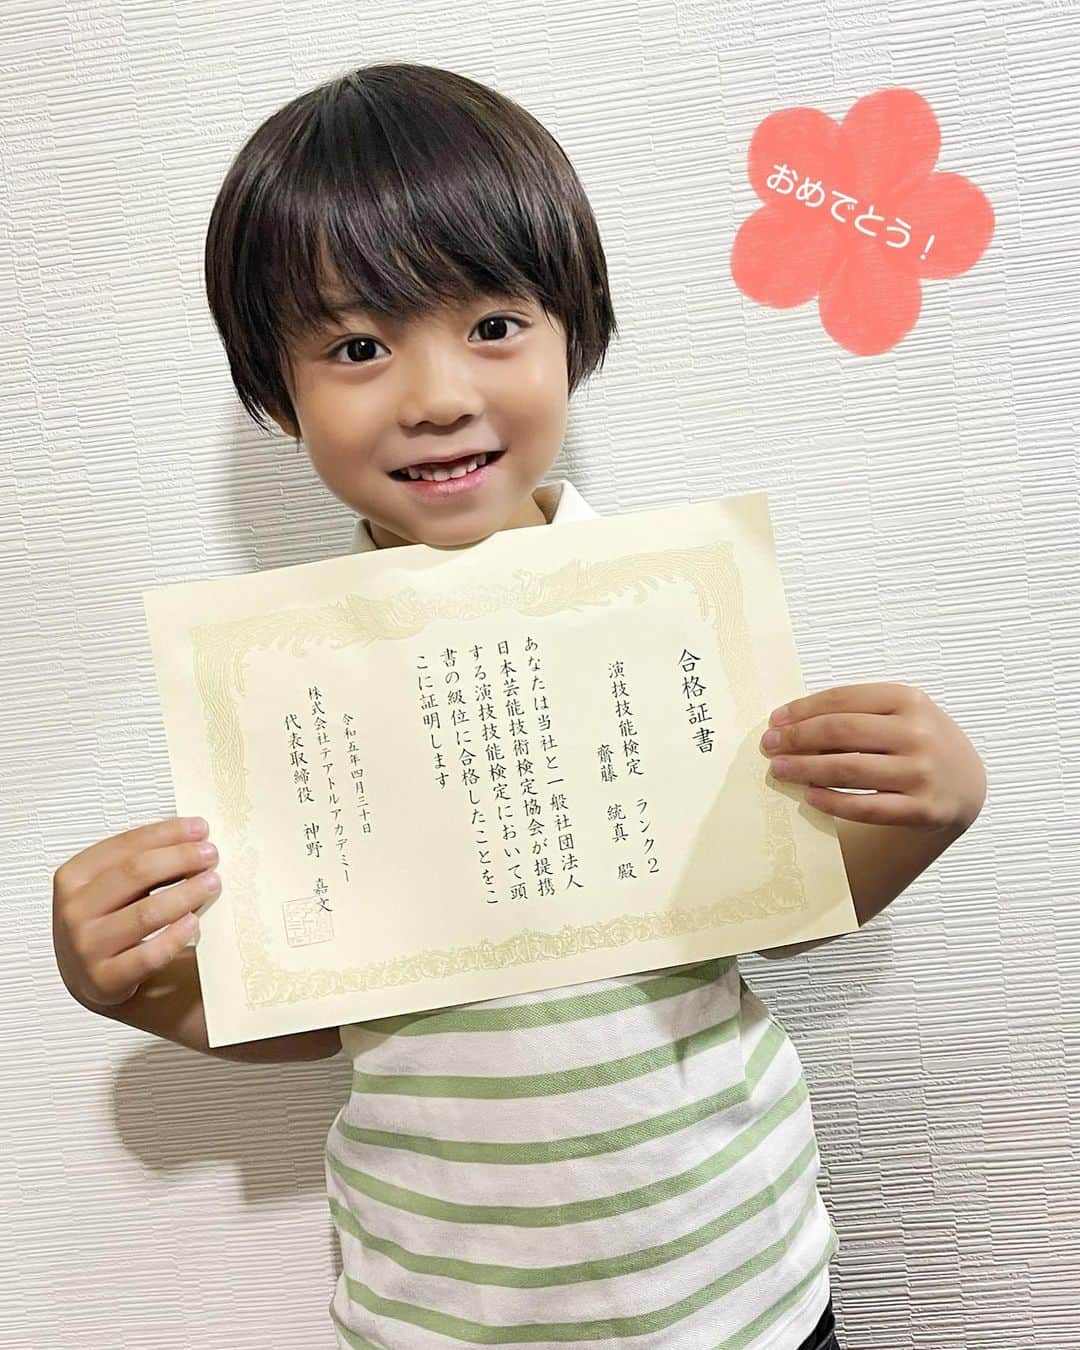 おめでとう！
合格証書
演技技能検定　ランク２
齋藤　統真　殿
あなたは当社と一般社団法人
日本芸能技術検定協会が提携
する演技技能検定において頭
書の級位に合格したことをこ
こに証明します
令和五年四月三十日
株式会社テアトルアカデミー
代表取締役　神野　嘉文